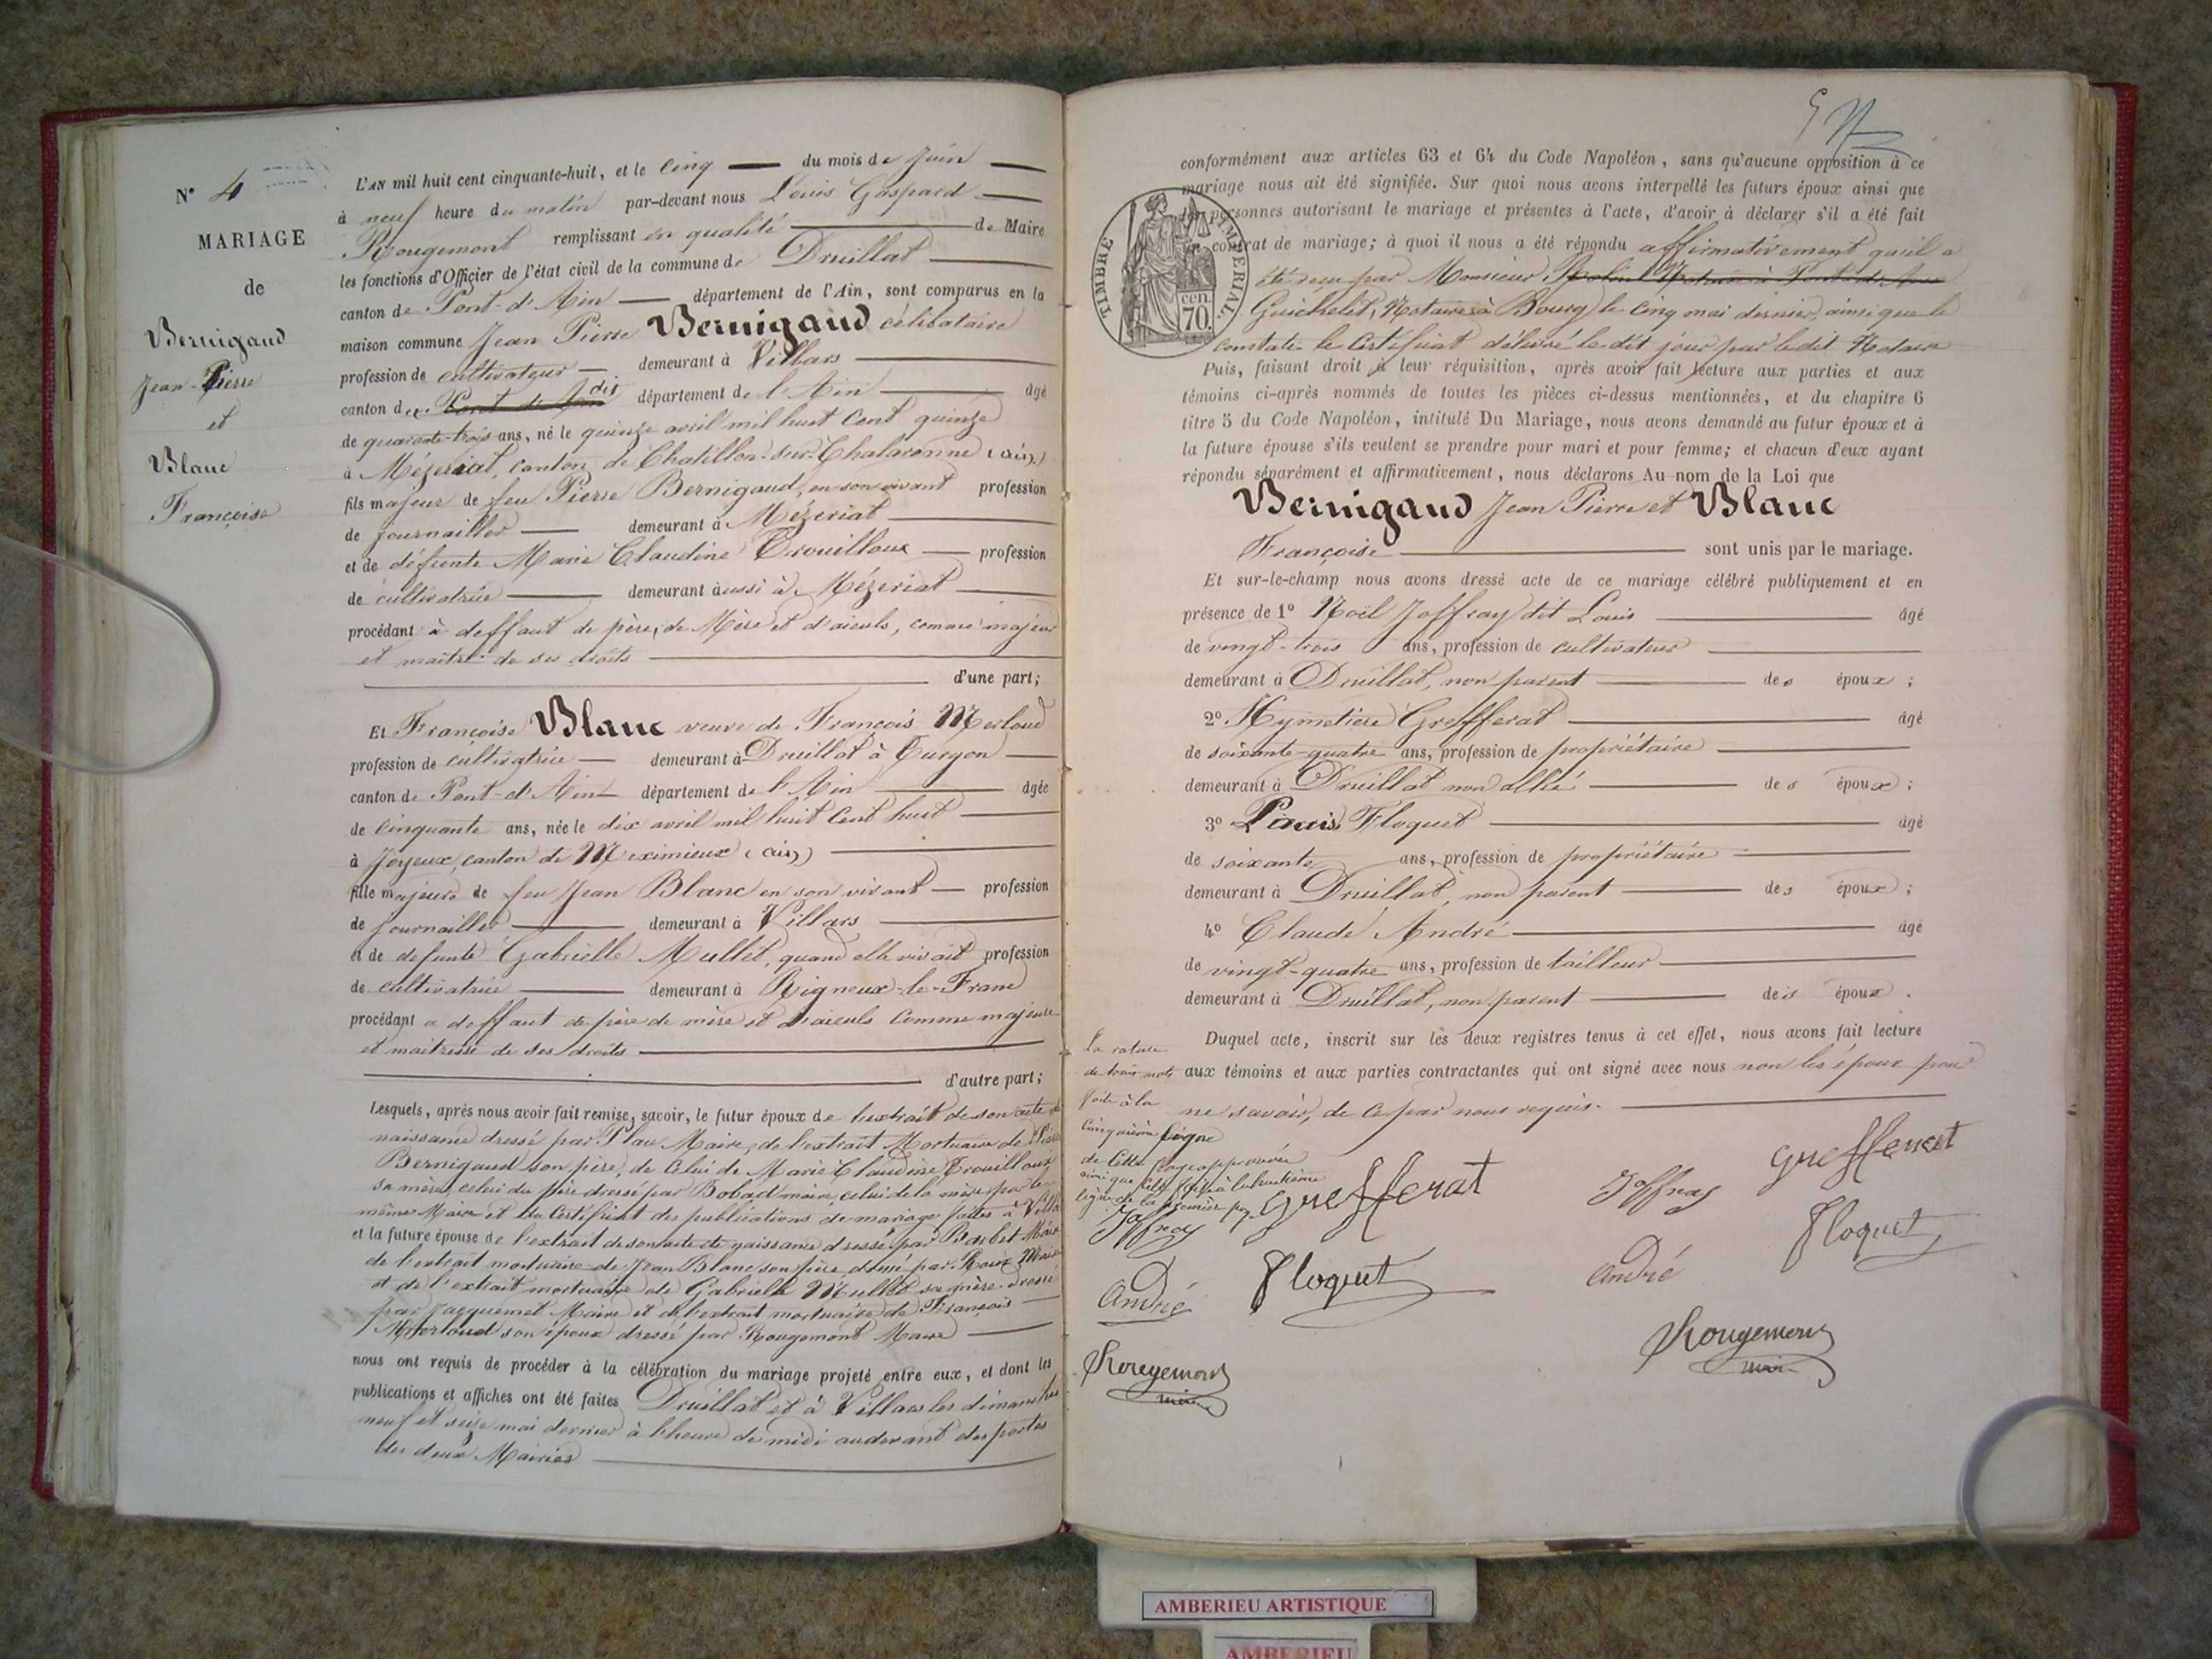 N° 4
MARIAGE
de
Bernigaud
Jean-Pierre
et
Blanc
Françoise
L'AN mil huit cent cinquante-huit, et le cinq du mois de Juin
à neuf heure du matin par-devant nous Louis Gaspard
Rougemont remplissant en qualité de Maire
les fonctions d'Officier de l'état civil de la commune de Druillat
canton de Pont-d'Ain département de l'Ain, sont comparus en la
maison commune Jean Pierre Bernigaud célibataire
profession de cultivateur demeurant à Villars
canton de dit département de l'Ain âgé
de quarante-trois ans, né le quinze avril mil huit cent quinze
à Mézeriat, canton de Chatillon-sur-Chalaronne (ain)
fils majeur de feu Pierre Bernigaud, en son vivant profession
de journaillier demeurant à Mézeriat
et de défunte Marie Claudine Trouilloux profession
de cultivatrice demeurant aussi à Mézeriat
procédant à deffaut de père, de Mère et d'aieuls, comme majeur
et maître de ses droits
d'une part;
Et Françoise Blanc veuve de François Merloud
profession de cultivatrice demeurant à Druillat à Turgon
canton de Pont-d'Ain département de l'Ain âgée
de cinquante ans, née le dix avril mil huit cent huit
à Joyeux, canton de Meximieux (ain)
fille majeure de feu Jean Blanc en son vivant profession
de journaillier demeurant à Villars
et de defunte Gabrielle Mullet, quand elle vivait profession
de cultivatrice demeurant à Rigneux-le-Franc
procédant a deffaut de père de mère et d'aieuls comme majeure
et maitresse de ses droits
d'autre part;
Lesquels, après nous avoir fait remise, savoir, le futur époux de l'extrait de son acte de
naissance dressé par Maire, de l'extrait Mortuaire de Pierre
Bernigaud son père, de celui de Marie Claudine Trouilloux
sa mère, celui du père dressé par Bobad maire, celui de la mère par le
même Maire et du certificat des publications de mariage faites à Villars
et la future épouse de l'extrait de son acte de naissance dressé par Barbet Maire
de l'extrait mortuaire de Jean Blanc son père dressé par Roux Maire
et de l'extrait mortuaire de Gabrielle Mullet sa mère dressé
par Jacquemet Maire et de l'extrait mortuaire de François
Merloud son époux dressé par Rougemont Maire
nous ont requis de procéder à la célébration du mariage projeté entre eux, et dont les
publications et affiches ont été faites Druillat et à Villars les dimanches
neuf et seize mai dernier à l'heure de midi au devant des portes
des deux Mairies
conformément aux articles 63 et 64 du Code Napoléon, sans qu'aucune opposition à ce
mariage nous ait été signifiée. Sur quoi nous avons interpellé les futurs époux ainsi que
les personnes autorisant le mariage et présentes à l'acte, d'avoir à déclarer s'il a été fait
un contrat de mariage; à quoi il nous a été répondu affirmativement qu'il a
été reçu par Monsieur
Guichelet, Notaire à Bourg le cinq mai dernier, ainsi que le
constate le certificat délivré le dit jour par le dit Notaire
TIMBRE IMPERIAL
cen.
70.
Puis, faisant droit à leur réquisition, après avoir fait lecture aux parties et aux
témoins ci-après nommés de toutes les pièces ci-dessus mentionnées, et du chapitre 6
titre 5 du Code Napoléon, intitulé Du Mariage, nous avons demandé au futur époux et à
la future épouse s'ils veulent se prendre pour mari et pour femme; et chacun d'eux ayant
répondu séparément et affirmativement, nous déclarons Au nom de la Loi que
Bernigaud Jean Pierre et Blanc
Françoise sont unis par le mariage.
Et sur-le-champ nous avons dressé acte de ce mariage célébré publiquement et en
présence de 1° Noël Joffray dit Louis âgé
de vingt-trois ans, profession de cultivateur
demeurant à Druillat, non parent des époux;
2° Hymetière Grefferat âgé
de soixante-quatre ans, profession de propriétaire
demeurant à Druillat non allié des époux;
3° Louis Floquet âgé
de soixante ans, profession de propriétaire
demeurant à Druillat, non parent des époux;
4° Claude André âgé
de vingt-quatre ans, profession de tailleur
demeurant à Druillat, non parent des époux.
Duquel acte, inscrit sur les deux registres tenus à cet effet, nous avons fait lecture
aux témoins et aux parties contractantes qui ont signé avec nous non les époux pour
ne savoir, de ce par nous requis.
La rature
de trois mots
faite à la
cinquième ligne
de cette page approuvée
ainsi que celle faite à la huitième
ligne de la première pag.
Joffray
Grefferat
André
Floquet
Rougemont
maire
Joffray
Grefferat
André
Floquet
Rougemont
maire
AMBERIEU ARTISTIQUE
AMBERIEU